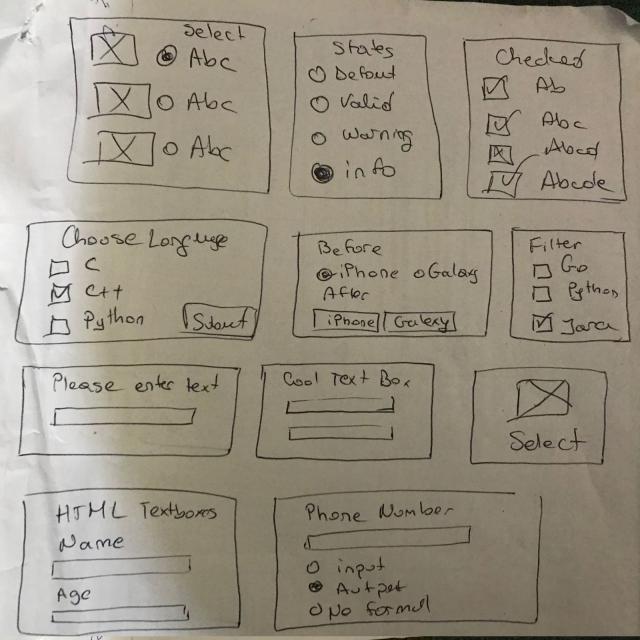 Select
Abc
Abc
Abc
States
Defout
Valid
warning
info
Checked
Ab
Abc
Abcd
Abcde
Choose Language
C
C++
Python
Submit
Before
iPhone Galaxy
After
iPhone Galaxy
Filter
Go
Python
Java
Please enter text
Cool Text Box
Select
HTML Textboxes
Name
Age
Phone Number
input
Autpet
No formul